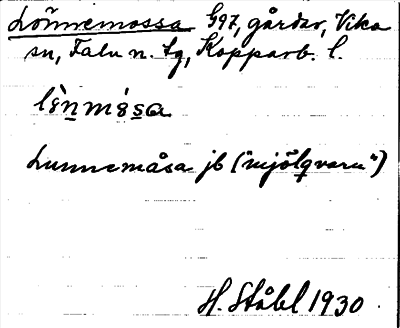 Lönnemossa G97, gårdar, Vika
sn, Falu n. tg, Kopparb. l.
Lunnemåsa jb ("mjölqvarn")
H. Ståhl 1930